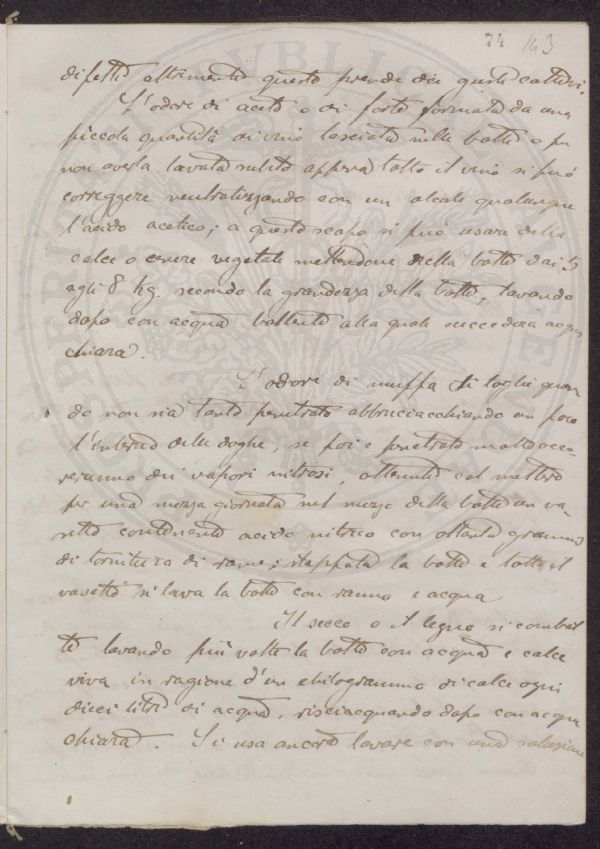 74 143
difetti altrimenti questo prende dei gusti cattivi.
L'odore di aceto o di forte formato da una
piccola quantità di vino lasciata nelle botti o per
non averla lavata subito appena tolto il vino si può
correggere neutralizzando con un alcali qualunque
l'acido acetico; a questo scopo si può usare della
calce o cenere vegetale mettendone nella botte dai 5
agli 8 kg. secondo la grandezza della botte, lavando
dopo con acqua bollente alla quale succederà acqua
chiara.
L'odore di muffa si toglie quan-
do non sia tanto penetrato abbruciacchiando un poco
l'interno delle doghe, se poi è penetrato molto occo-
reranno dei vapori nitrosi, ottenuti col mettere
per una mezza giornata nel mezzo della botte un va-
setto contenente acido nitrico con ottanta grammi
di tornitura di rame; stappata la botte e tolto il
vasetto si lava la botte con ranno e acqua
Il secco o il legno si combat
te lavando più volte la botte con acqua e calce
viva in ragione d'un chilogrammo di calce ogni
dieci litri di acqua, risciacquando dopo con acqua
chiara. Si usa ancora lavare con una soluzione